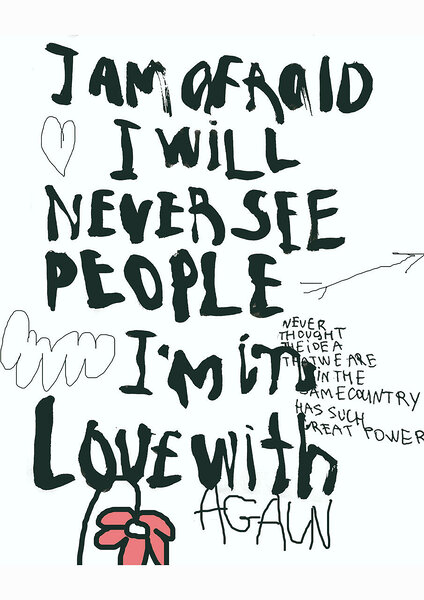 I AM AFRAID
I WILL
NEVER SEE
PEOPLE
I'M IN
LOVE WITH
AGAIN
NEVER
THOUGHT
THE IDEA
THAT WE ARE
IN THE
SAME COUNTRY
HAS SUCH
GREAT POWER